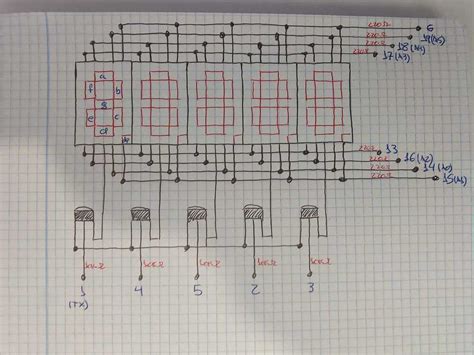 220Ω 6
220Ω 19(A5)
220Ω 18(A4)
220Ω 17(A3)
a
f b
g
e c
d
220Ω 13
220Ω 16(A2)
220Ω 14(A0)
220Ω 15(A1)
100Ω 100Ω 100Ω 100Ω 100Ω
1 4 5 2 3
(TX)